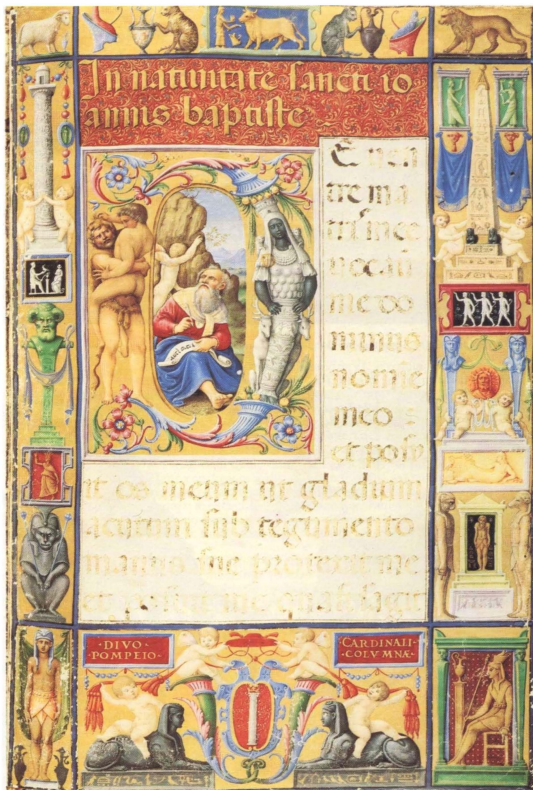 In natiuitate sancti io
annis baptiste
D E uen
tre ma
tris mee
uocauit
me do
minus
nomie
meo :
et posu
it os meum ut gladium
acutum sub tegumento
manus sue protexit me
et posuit me quasi sagit
·DIVO·
POMPEIO·
CARDINALI·
·COLVMNÆ·